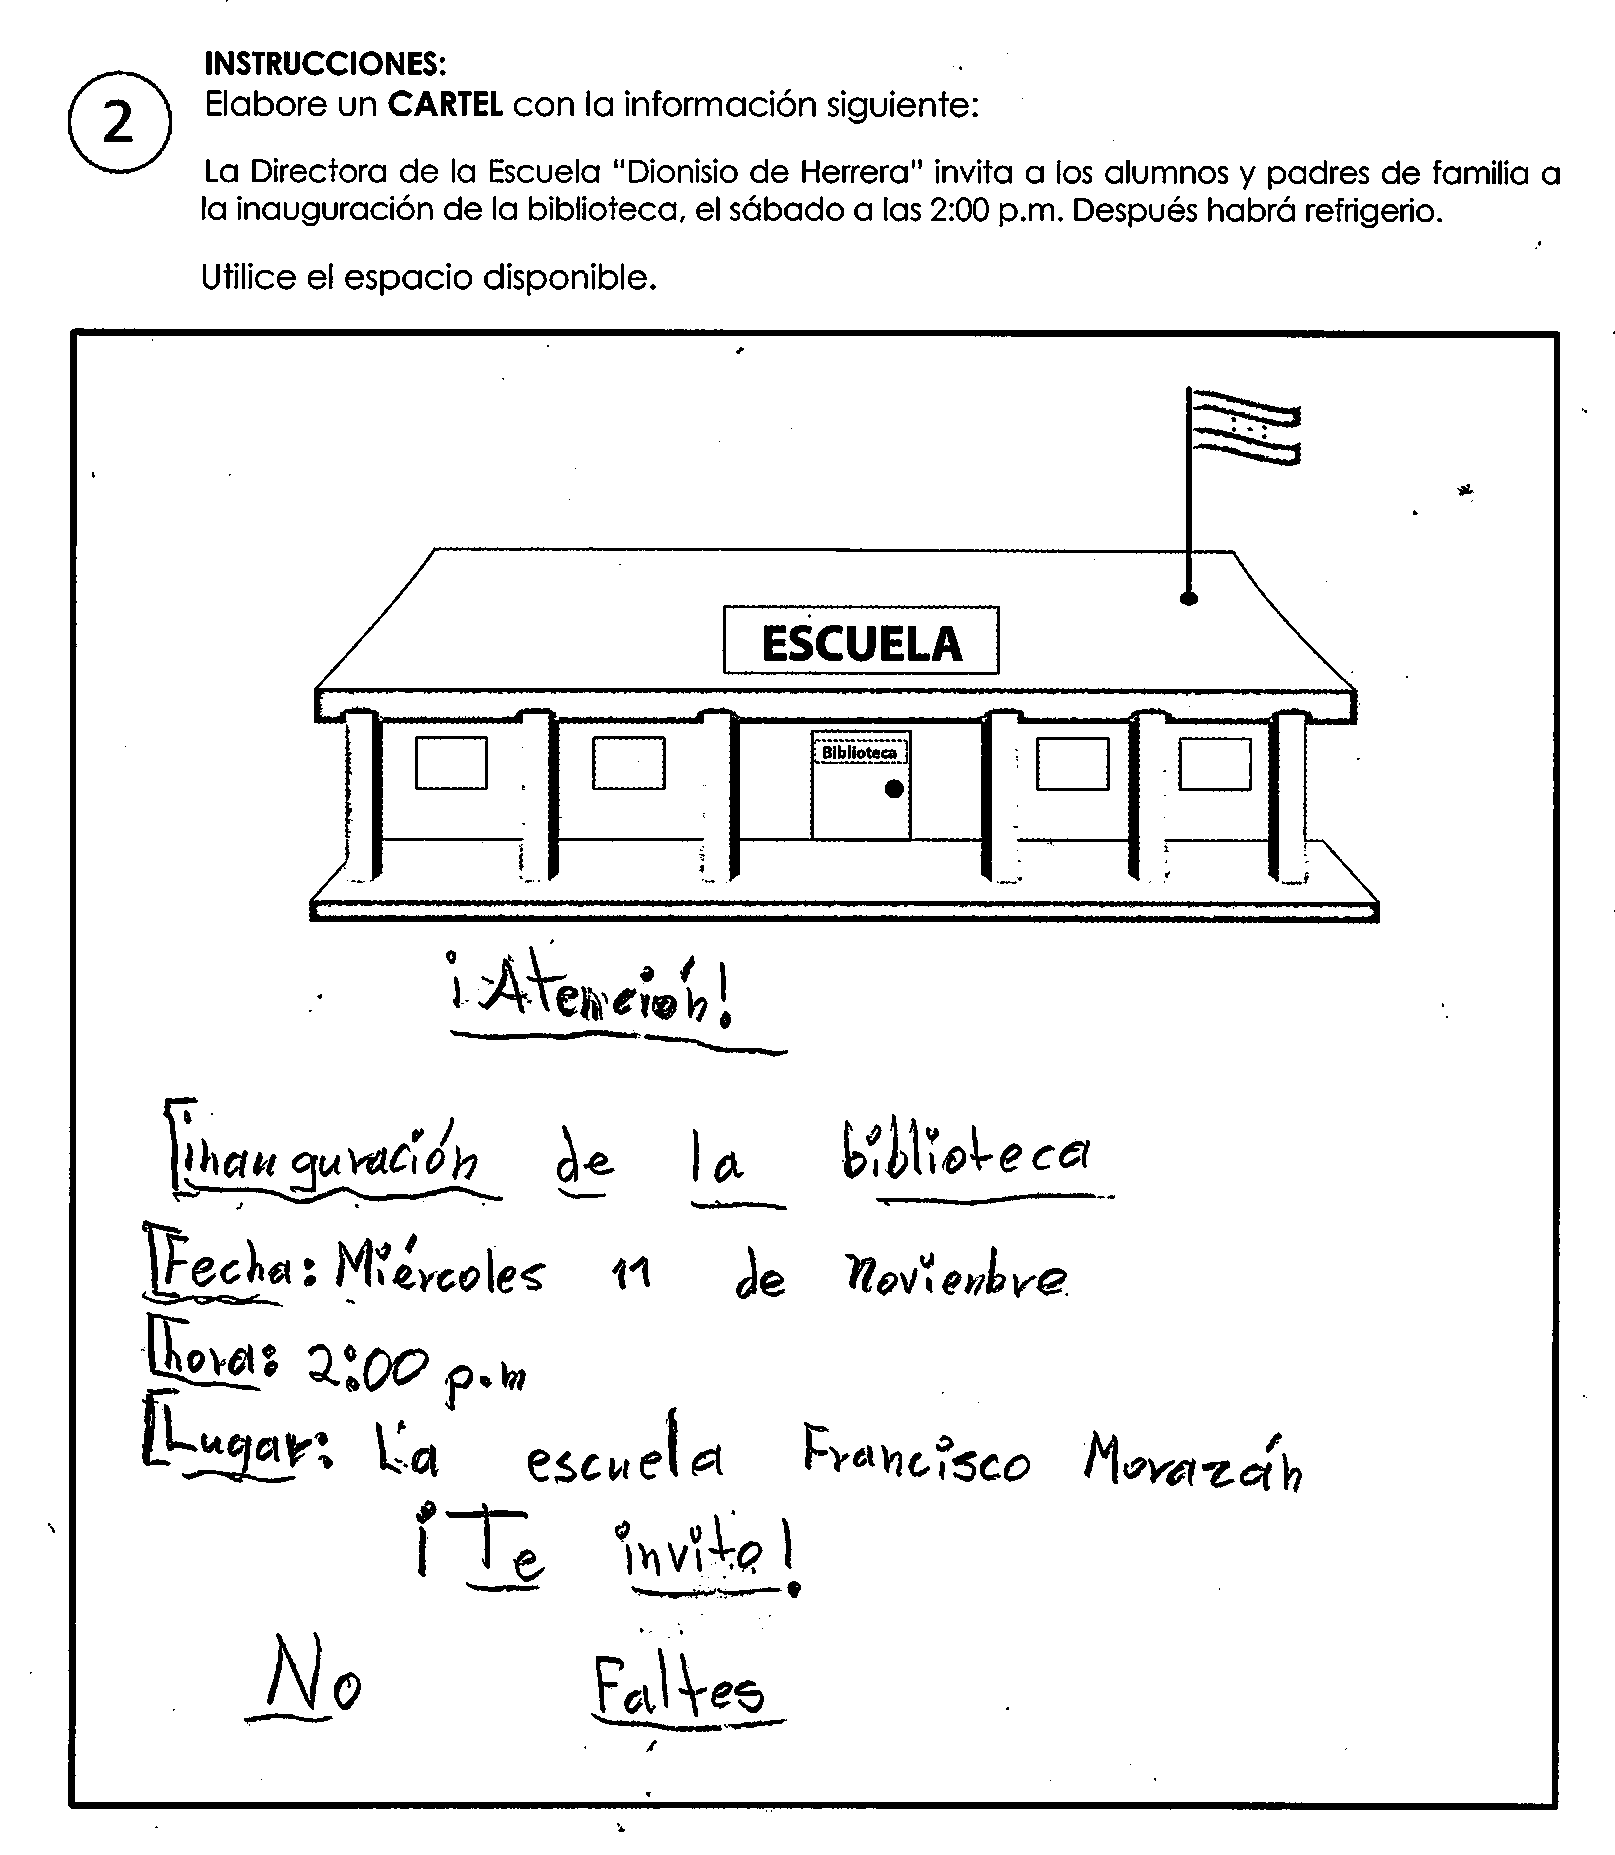 INSTRUCCIONES:
2
Elabore un CARTEL con la información siguiente:
La Directora de la Escuela "Dionisio de Herrera" invita a los alumnos y padres de familia a
la inauguración de la biblioteca, el sábado a las 2:00 p.m. Después habrá refrigerio.
Utilice el espacio disponible.
ESCUELA
Biblioteca
¡Atención!
inauguración de la biblioteca
Fecha: Miércoles 11 de Novienbre
hora: 2:00 p.m
Lugar: La escuela Francisco Morazán
¡Te invito!
No Faltes